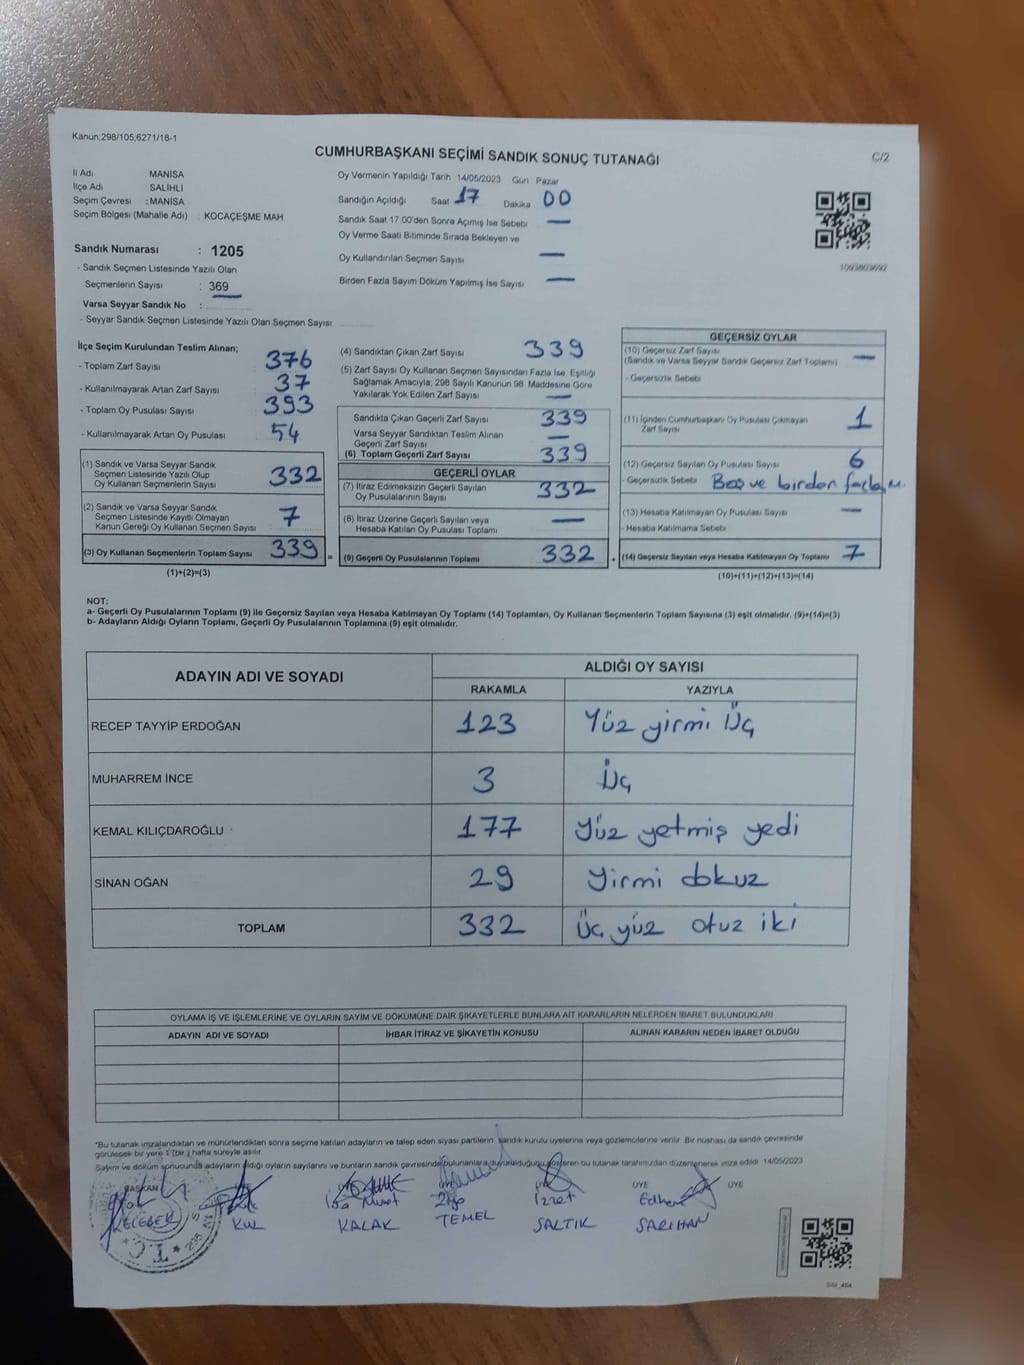 Kanun,298/105,6271/18-1
CUMHURBAŞKANI SEÇİMİ SANDIK SONUÇ TUTANAĞI
C/2
İl Adı : MANİSA
İlçe Adı : SALİHLİ
Seçim Çevresi : MANİSA
Seçim Bölgesi (Mahalle Adı) : KOCAÇEŞME MAH.
Sandık Numarası : 1205
- Sandık Seçmen Listesinde Yazılı Olan
Seçmenlerin Sayısı : 369
Varsa Seyyar Sandık No :
- Seyyar Sandık Seçmen Listesinde Yazılı Olan Seçmen Sayısı:
Oy Vermenin Yapıldığı Tarih 14/05/2023 Gün Pazar
Sandığın Açıldığı Saat 17 Dakika 00
Sandık Saat 17:00'den Sonra Açımış İse Sebebi —
Oy Verme Saati Bitiminde Sırada Bekleyen ve
Oy Kullandırılan Seçmen Sayısı —
Birden Fazla Sayım Döküm Yapılmış İse Sayısı —
1093803692
İlçe Seçim Kurulundan Teslim Alınan;
- Toplam Zarf Sayısı 376
- Kullanılmayarak Artan Zarf Sayısı 37
- Toplam Oy Pusulası Sayısı 393
- Kullanılmayarak Artan Oy Pusulası 54
(1) Sandık ve Varsa Seyyar Sandık
Seçmen Listesinde Yazılı Olup
Oy Kullanan Seçmenlerin Sayısı 332
(2) Sandık ve Varsa Seyyar Sandık
Seçmen Listesinde Kayıtlı Olmayan
Kanun Gereği Oy Kullanan Seçmen Sayısı 7
(3) Oy Kullanan Seçmenlerin Toplam Sayısı 339 =
(1)+(2)=(3)
(4) Sandıktan Çıkan Zarf Sayısı 339
(5) Zarf Sayısı Oy Kullanan Seçmen Sayısından Fazla İse, Eşitliği
Sağlamak Amacıyla; 298 Sayılı Kanunun 98. Maddesine Göre
Yakılarak Yok Edilen Zarf Sayısı —
Sandıkta Çıkan Geçerli Zarf Sayısı 339
Varsa Seyyar Sandıktan Teslim Alınan
Geçerli Zarf Sayısı —
(6) Toplam Geçerli Zarf Sayısı 339
GEÇERLİ OYLAR
(7) İtiraz Edilmeksizin Geçerli Sayılan
Oy Pusulalarının Sayısı 332
(8) İtiraz Üzerine Geçerli Sayılan veya
Hesaba Katılan Oy Pusulası Toplamı —
(9) Geçerli Oy Pusulalarının Toplamı 332 +
GEÇERSİZ OYLAR
(10) Geçersiz Zarf Sayısı
(Sandık ve Varsa Seyyar Sandık Geçersiz Zarf Toplamı) —
- Geçersizlik Sebebi
(11) İçinden Cumhurbaşkanı Oy Pusulası Çıkmayan
Zarf Sayısı 1
(12) Geçersiz Sayılan Oy Pusulası Sayısı 6
- Geçersizlik Sebebi Boş ve birden fazla
(13) Hesaba Katılmayan Oy Pusulası Sayısı —
- Hesaba Katılmama Sebebi
(14) Geçersiz Sayılan veya Hesaba Katılmayan Oy Toplamı 7
(10)+(11)+(12)+(13)=(14)
NOT:
a- Geçerli Oy Pusulalarının Toplamı (9) ile Geçersiz Sayılan veya Hesaba Katılmayan Oy Toplamı (14) Toplamları, Oy Kullanan Seçmenlerin Toplam Sayısına (3) eşit olmalıdır. (9)+(14)=(3)
b- Adayların Aldığı Oyların Toplamı, Geçerli Oy Pusulalarının Toplamına (9) eşit olmalıdır.
ADAYIN ADI VE SOYADI
ALDIĞI OY SAYISI
RAKAMLA YAZIYLA
RECEP TAYYİP ERDOĞAN 123 Yüz yirmi Üç
MUHARREM İNCE 3 Üç
KEMAL KILIÇDAROĞLU 177 Yüz yetmiş yedi
SİNAN OĞAN 29 Yirmi dokuz
TOPLAM 332 Üç yüz otuz iki
OYLAMA İŞ VE İŞLEMLERİNE VE OYLARIN SAYIM VE DÖKÜMÜNE DAİR ŞİKAYETLERLE BUNLARA AİT KARARLARIN NELERDEN İBARET BULUNDUKLARI
ADAYIN ADI VE SOYADI İHBAR İTİRAZ VE ŞİKAYETİN KONUSU ALINAN KARARIN NEDEN İBARET OLDUĞU
*Bu tutanak imzalandıktan ve mühürlendikten sonra seçime katılan adayların ve talep eden siyasi partilerin, sandık kurulu üyelerine veya gözlemcilerine verilir. Bir nüshası da sandık çevresinde
görülecek bir yere 1 (bir) hafta süreyle asılır.
Sayım ve döküm sonucunda adayların aldığı oyların sayılarını ve bunların sandık çevresinde bulunanlara duyurulduğunu gösteren bu tutanak tarafımızdan düzenlenerek imza edildi. 14/05/2023
BAŞKAN ÜYE ÜYE
İsa Murat İzzet Edhem
KELEBEK KUL KALAK TEMEL SALTIK SARIHAN